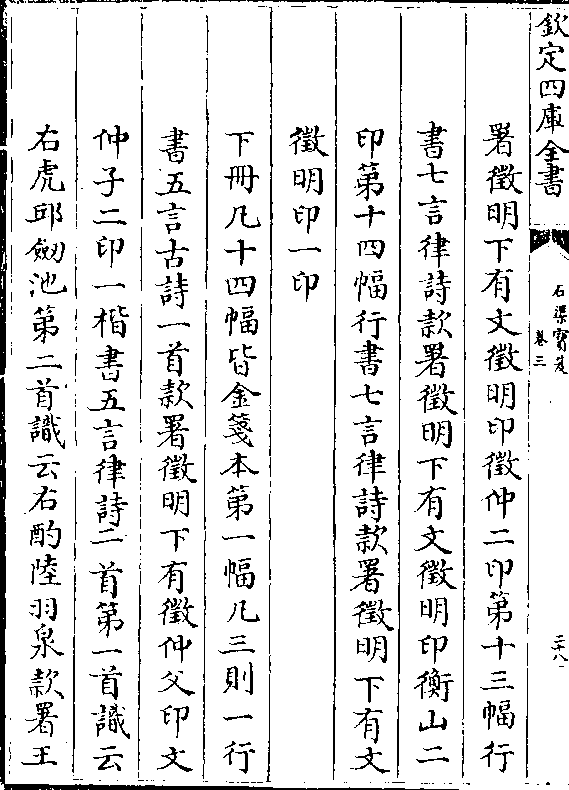 欽定四庫全書
石渠寳笈
卷三
三十八
署徵明下有文徵明印徵仲二印第十三幅行
書七言律詩款署徵明下有文徵明印衡山二
印第十四幅行書七言律詩款署徵明下有文
徵明印一印
下冊凡十四幅皆金箋本第一幅凡三則一行
書五言古詩一首款署徵明下有徵仲父印文
仲子二印一楷書五言律詩二首第一首識云
右虎邱劒池第二首識云右酌陸羽泉款署王